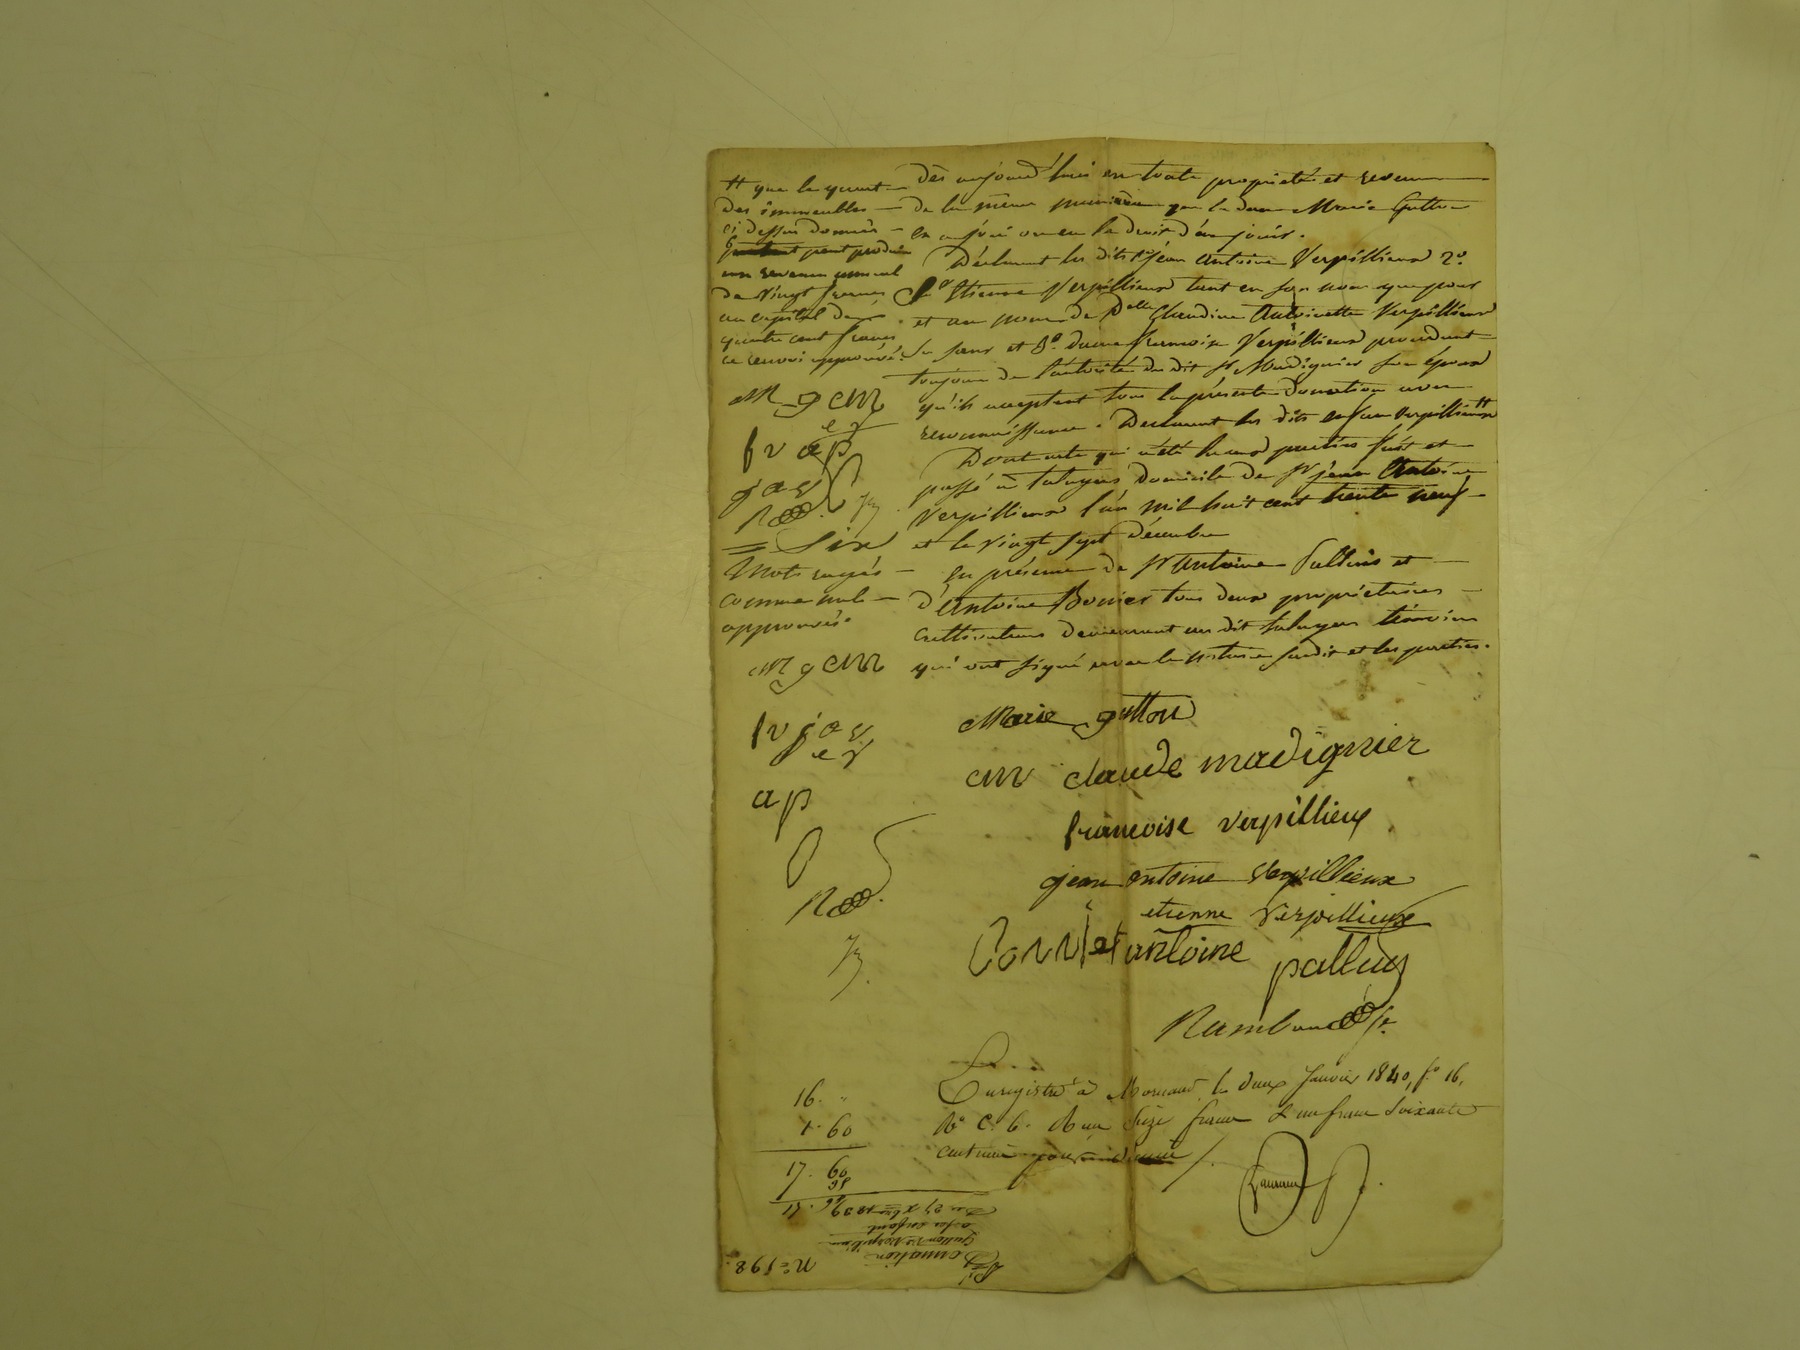 dès aujourd'hui en toute propriété et revenu
de la même manière que la dame Marie Gutton
en a joui ou eu le droit d'en jouir.
Déclarent les dits 1° jean antoine Verpillieux 2°
Etienne Verpillieux tant en son nom que pour
et au nom de Delle Claudine Antoinette Verpillieux
sa sœur et 3° dame francoise Verpillieux procédant
toujours de l'autorité du dit Sr Madignier son époux
qu'ils acceptent tous la présente donation avec
reconnaissance. Déclarent les dits enfans Verpillieux #
Dont acte qui a été lu aux parties fait et
passé à taluyers domicile de Sr jean Antoine
Verpillieux l'an mil huit cent trente neuf
et le vingt sept décembre
En présence de Sr Antoine et
d'Antoine tous deux propriétaires
cultivateurs demeurant au dit taluyers témoins
qui ont signé avec le notaire susdit et les parties.
# que le quart
des immeubles
ci dessus donnés
peut produire
un revenu annuel
de vingt francs
au capital de
quatre cent francs
ce renvoi approuvé.
M g CM
e v
f v a p
j a v
R
= Six
Mots rayés
comme nuls
approuvés.
M g CM
f v j a v
e v
a p
R
Marie gutton
CM claude madignier
francoise verpillieux
jean antoine verpillieux
etienne verpillieux
antoine
Rambaud
Enregistré à Mornant le deux Janvier 1840, f° 16,
R° C. 6. Reçu Seize francs & un franc soixante
centimes pour
16. "
1. 60
17. 60
35
N° 598
Donation
Gutton Ve Verpillieux
à ses enfants
Du 27 Xbre 1839